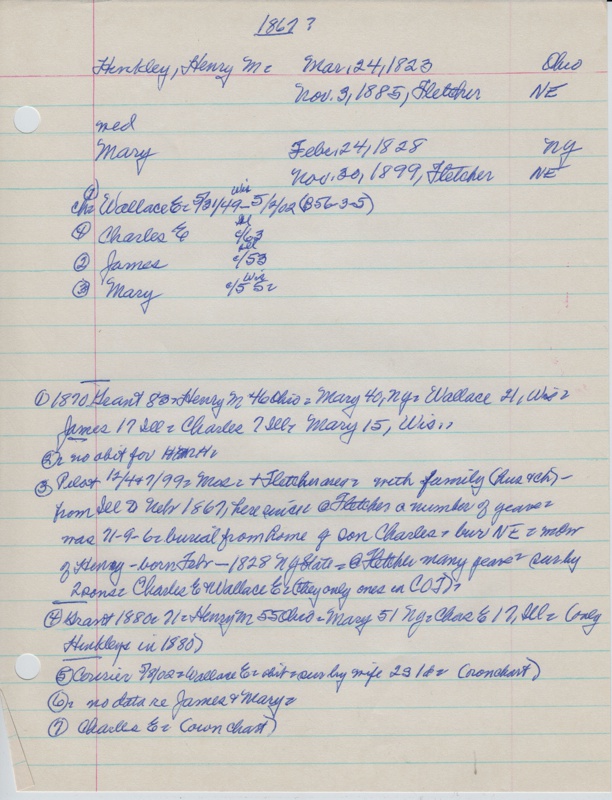 1867?
Hinkley, Henry M= Mar, 24, 1823 Ohio
Nov. 3, 1885, Fletcher NE
med
Mary Febr, 24, 1828 NY
Nov. 30, 1899, Fletcher NE
①
ch= Wallace E= 5/31/49 Wis - 5/2/02 (B56-3-5)
④ Charles E c/63 Ill
② James c/53 Ill
③ Mary c/55= Wis
① 1870 Grant 83= Henry M 46 Ohio= Mary 40, NY= Wallace 21, Wis=
James 17 Ill= Charles 7 Ill= Mary 15, Wis,,
②= no obit for HMH=
③ Pilot 12/4+7/99= Mos= + Fletcher area= with family (hus & ch) -
from Ill to Nebr 1867, here since= @ Fletcher a number of years=
was 71-9-6= burial from home of son Charles= bur NE= mbr
of Henry - born Febr - 1828 NY State= @ Fletcher many years= sur by
2 sons= Charles E & Wallace E= (they only ones in COT)=
④ Grant 1880= 71= Henry M 55 Ohio= Mary 51 NY= Chas E 17, Ill= (only
Hinkleys in 1880)
⑤ Courier 5/9/02= Wallace E= obit= sur by wife 2s 1d= (own chart)
⑥= no data re James & Mary=
⑦ Charles E= (own chart)